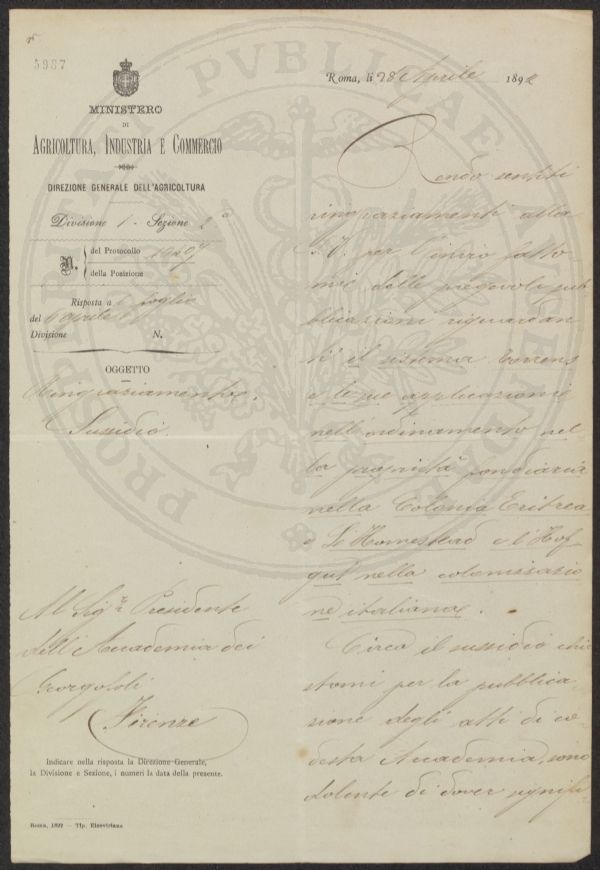 5987
Roma, lì 28 Aprile 1892
MINISTERO
DI
AGRICOLTURA, INDUSTRIA E COMMERCIO
DIREZIONE GENERALE DELL'AGRICOLTURA
Divisione 1 - Sezione 2ª
N.
del Protocollo
della Posizione
Risposta a foglio
del Aprile
Divisione N.
OGGETTO
Ringraziamento.
Sussidio.
Al Sigʳ Presidente
dell'Accademia dei
Georgofili
Firenze
Indicare nella risposta la Direzione Generale,
la Divisione e Sezione, i numeri la data della presente.
Roma, 1892 — Tip. Elzeviriana
Rendo sentiti
ringraziamenti alla
S. V. per l'invio fatto
mi delle pregevoli pub
blicazioni riguardan
ti il sistema Torrens
e le sue applicazioni
nell'ordinamento del
la proprietà fondiaria
nella Colonia Eritrea
e L'Homestead e l'Hof
nella colonizzazio
ne italiana.
Circa il sussidio chie
stomi per la pubblica
zione degli atti di co
desta Accademia, sono
dolente di dover signifi
PROSPERITATI PVBLICAE AVGENDAE